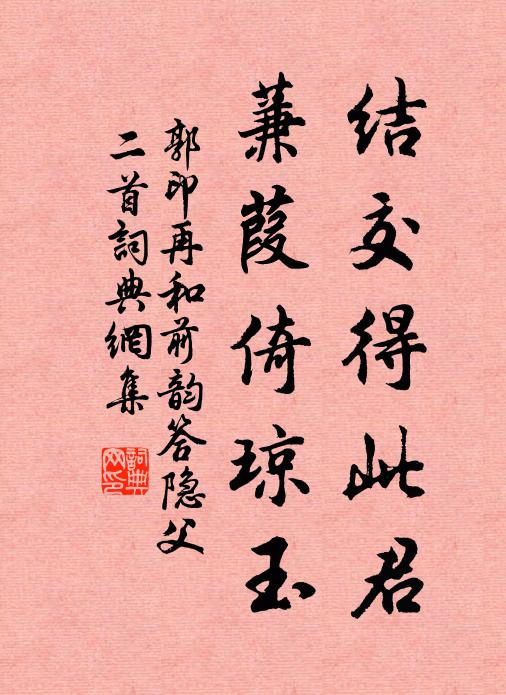 结交得此君
蒹葭倚琼玉
郭印再和前韵答隐父
二首詞典網集
詞典
网印